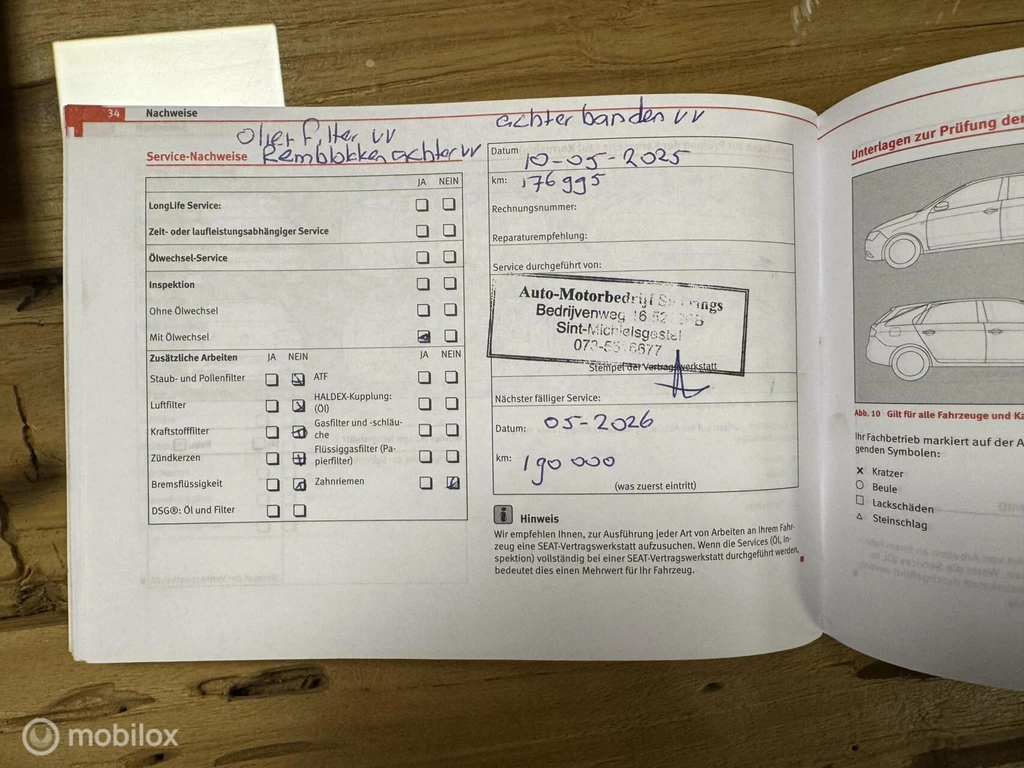 34 Nachweise
olier filter vv
achter banden vv
Service-Nachweise
Remblokken achter vv
JA NEIN
LongLife Service:
Zeit- oder laufleistungsabhängiger Service
Ölwechsel-Service
Inspektion
Ohne Ölwechsel
Mit Ölwechsel
Zusätzliche Arbeiten JA NEIN JA NEIN
Staub- und Pollenfilter ATF
Luftfilter HALDEX-Kupplung:
(Öl)
Kraftstofffilter Gasfilter und -schläu-
che
Zündkerzen Flüssiggasfilter (Pa-
pierfilter)
Bremsflüssigkeit Zahnriemen
DSG®: Öl und Filter
Datum 10-05-2025
km: 176995
Rechnungsnummer:
Reparaturempfehlung:
Service durchgeführt von:
Auto-Motorbedrijf
Bedrijvenweg 16
Sint-Michielsgestel
Stempel der Vertragswerkstatt
Nächster fälliger Service:
Datum: 05-2026
km: 190 000
(was zuerst eintritt)
i Hinweis
Wir empfehlen Ihnen, zur Ausführung jeder Art von Arbeiten an Ihrem Fahr-
zeug eine SEAT-Vertragswerkstatt aufzusuchen. Wenn die Services (Öl, In-
spektion) vollständig bei einer SEAT-Vertragswerkstatt durchgeführt werden,
bedeutet dies einen Mehrwert für Ihr Fahrzeug.
Unterlagen zur Prüfung der
Abb. 10 Gilt für alle Fahrzeuge und
Ihr Fachbetrieb markiert auf der
genden Symbolen:
× Kratzer
○ Beule
□ Lackschäden
△ Steinschlag
mobilox